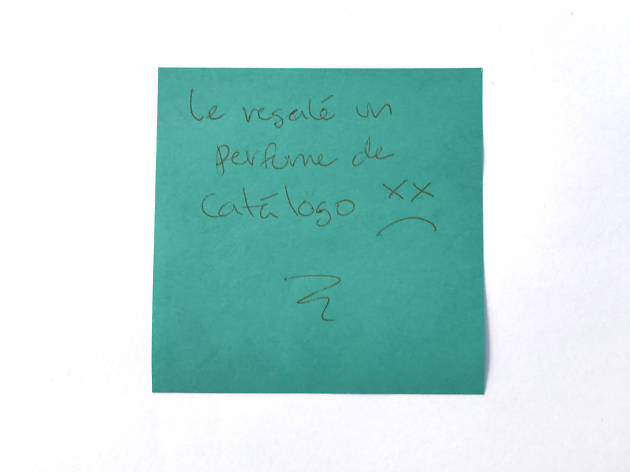 Le regalé un
perfume de
catálogo xx